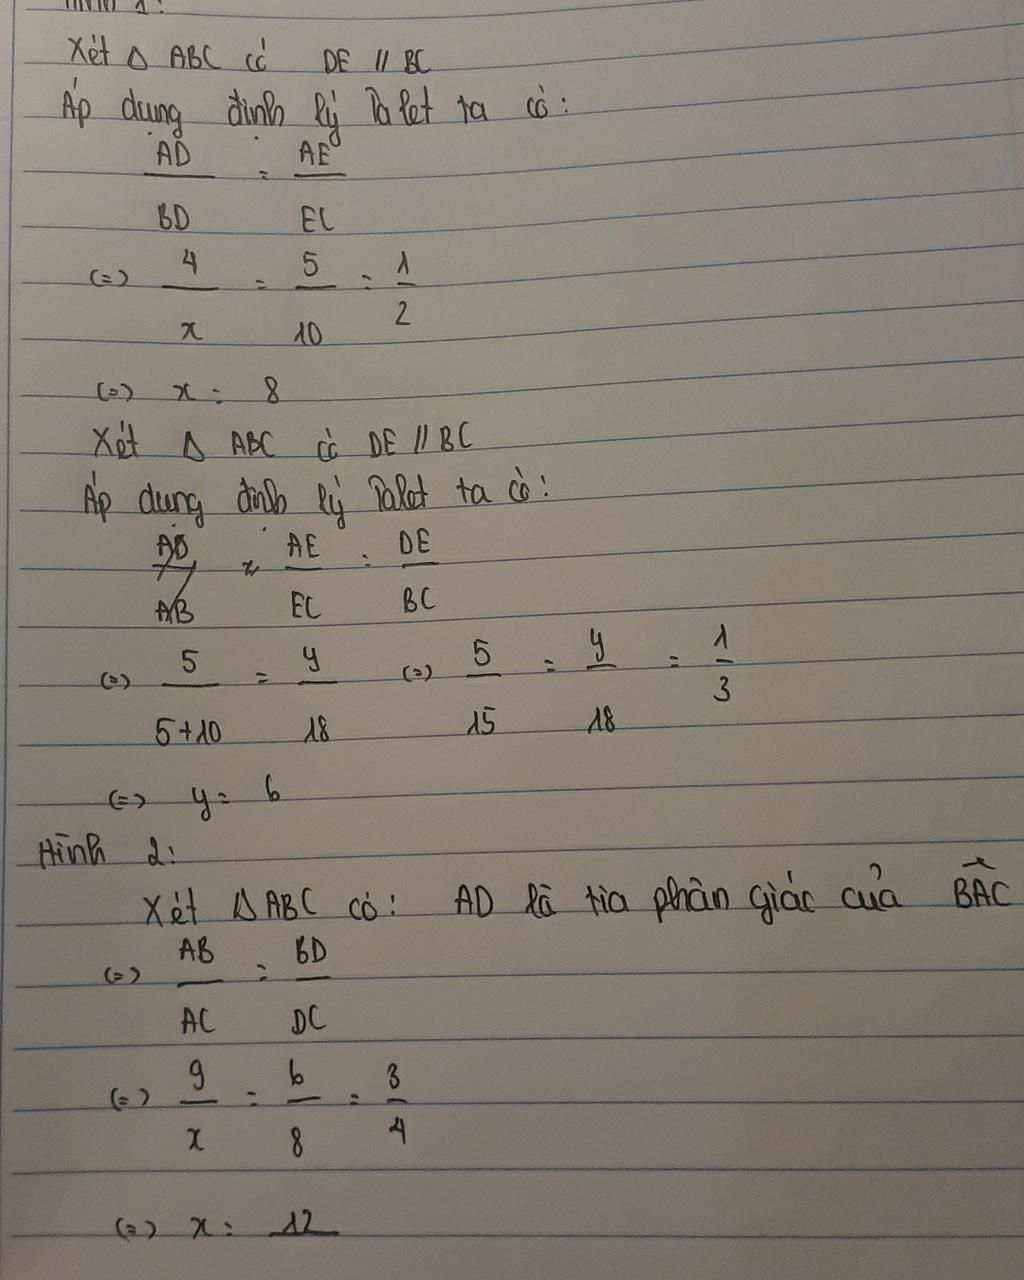 Hình 1:
Xét Δ ABC có DE // BC
Áp dụng định lý Talet ta có:
AD/BD = AE/EC
(=) 4/x = 5/10 = 1/2
(=) x = 8
Xét Δ ABC có DE // BC
Áp dụng định lý Talet ta có:
AE/EC = DE/BC
(=) 5/5+10 = y/18 (=) 5/15 = y/18 = 1/3
(=) y = 6
Hình 2:
Xét Δ ABC có: AD là tia phân giác của BAC
(=) AB/AC = BD/DC
(=) 9/x = 6/8 = 3/4
(=) x = 12